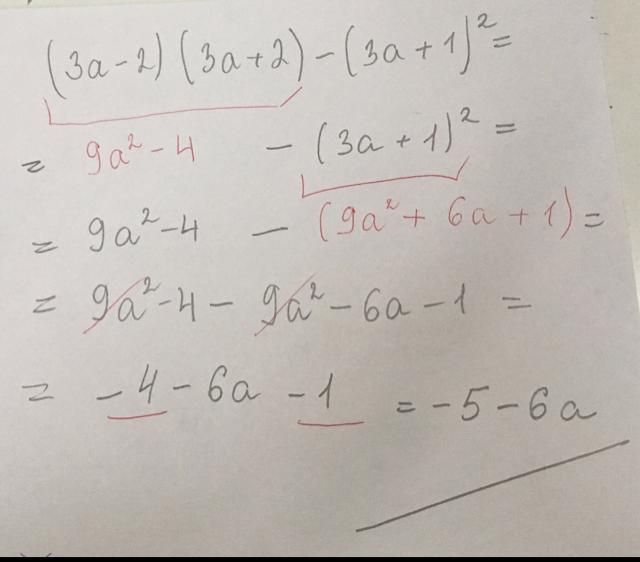 (3a-2)(3a+2)-(3a+1)²=
= 9a²-4 - (3a+1)² =
= 9a²-4 - (9a²+6a+1)=
= 9a²-4-9a²-6a-1 =
= -4-6a-1 =-5-6a